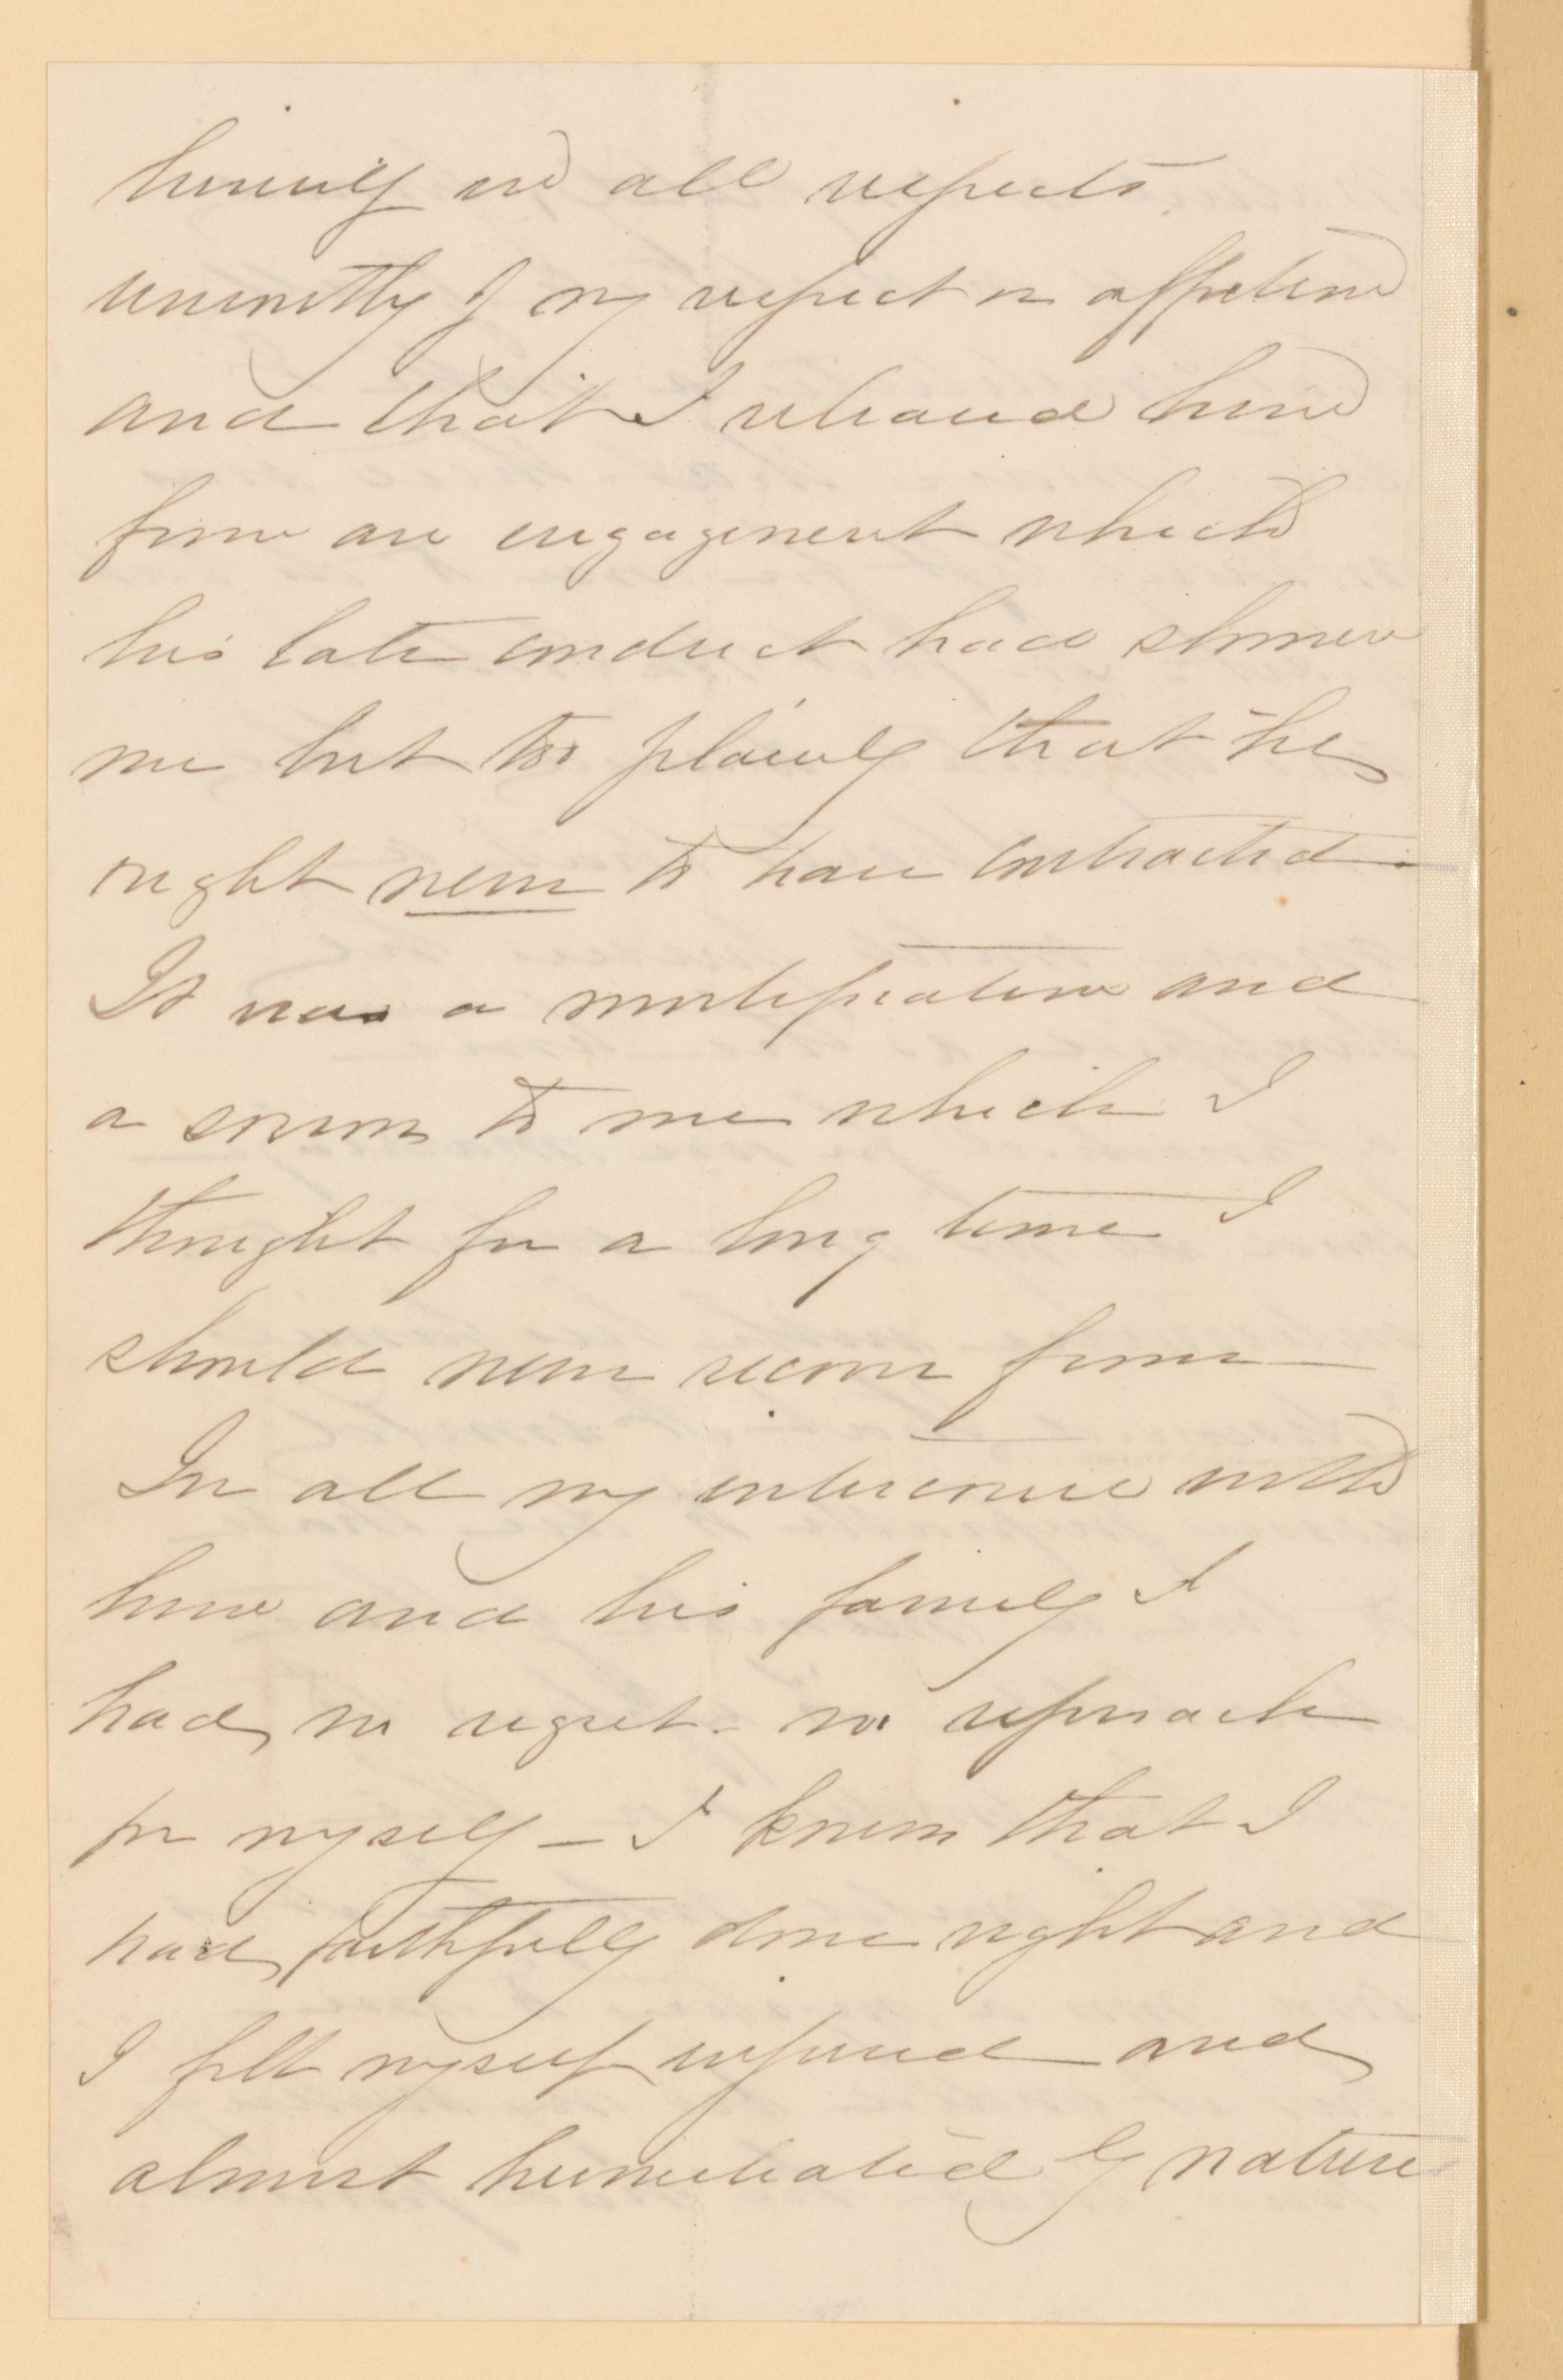 himself in all respects
unworthy of my respect or affection
and that I released him
from an engagement which
his late conduct had shown
me but too plainly that he
ought never to have contracted.
It was a mortification and
a sorrow to me which I
thought for a long time I
should never recover from
In all my intercourse with
him and his family I
had no regret - no reproach
for myself - I knew that I
had faithfully done right and
I felt myself injured and
almost humiliated by nature